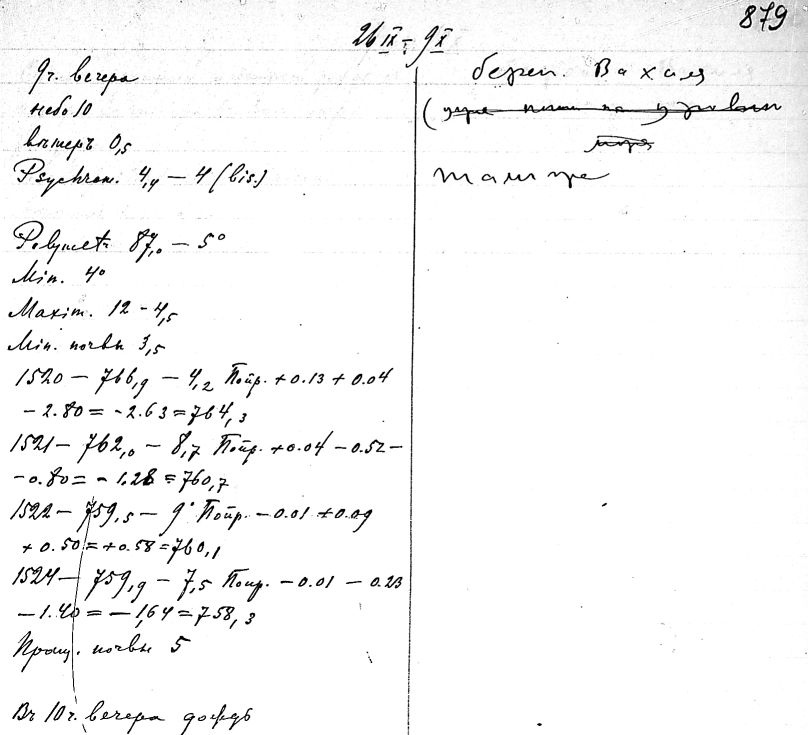 879
26 IX - 9 X
9 ч. вечера
небо 10
вѣтеръ 0,5
Psychrom. 4,4 — 4 (bis.)
Polymetr. 87,0 — 5°
Min. 4°
Maxim. 12 - 4,5
Min. почвы 3,5
1520 — 766,9 — 4,2 Попр. +0.13 +0.04
-2.80 = -2.63 = 764,3
1521 — 762,0 — 8,7 Попр. +0.04 -0.52 -
-0.80 = -1.28 = 760,7
1522 — 759,5 — 9° Попр. -0.01 +0.09
+0.50 = +0.58 = 760,1
1524 — 759,9 — 7,5 Попр. -0.01 -0.23
-1.40 = -1,64 = 758,3
почвы 5
Въ 10 ч. вечера дождь
берег. Вахия
(
моря